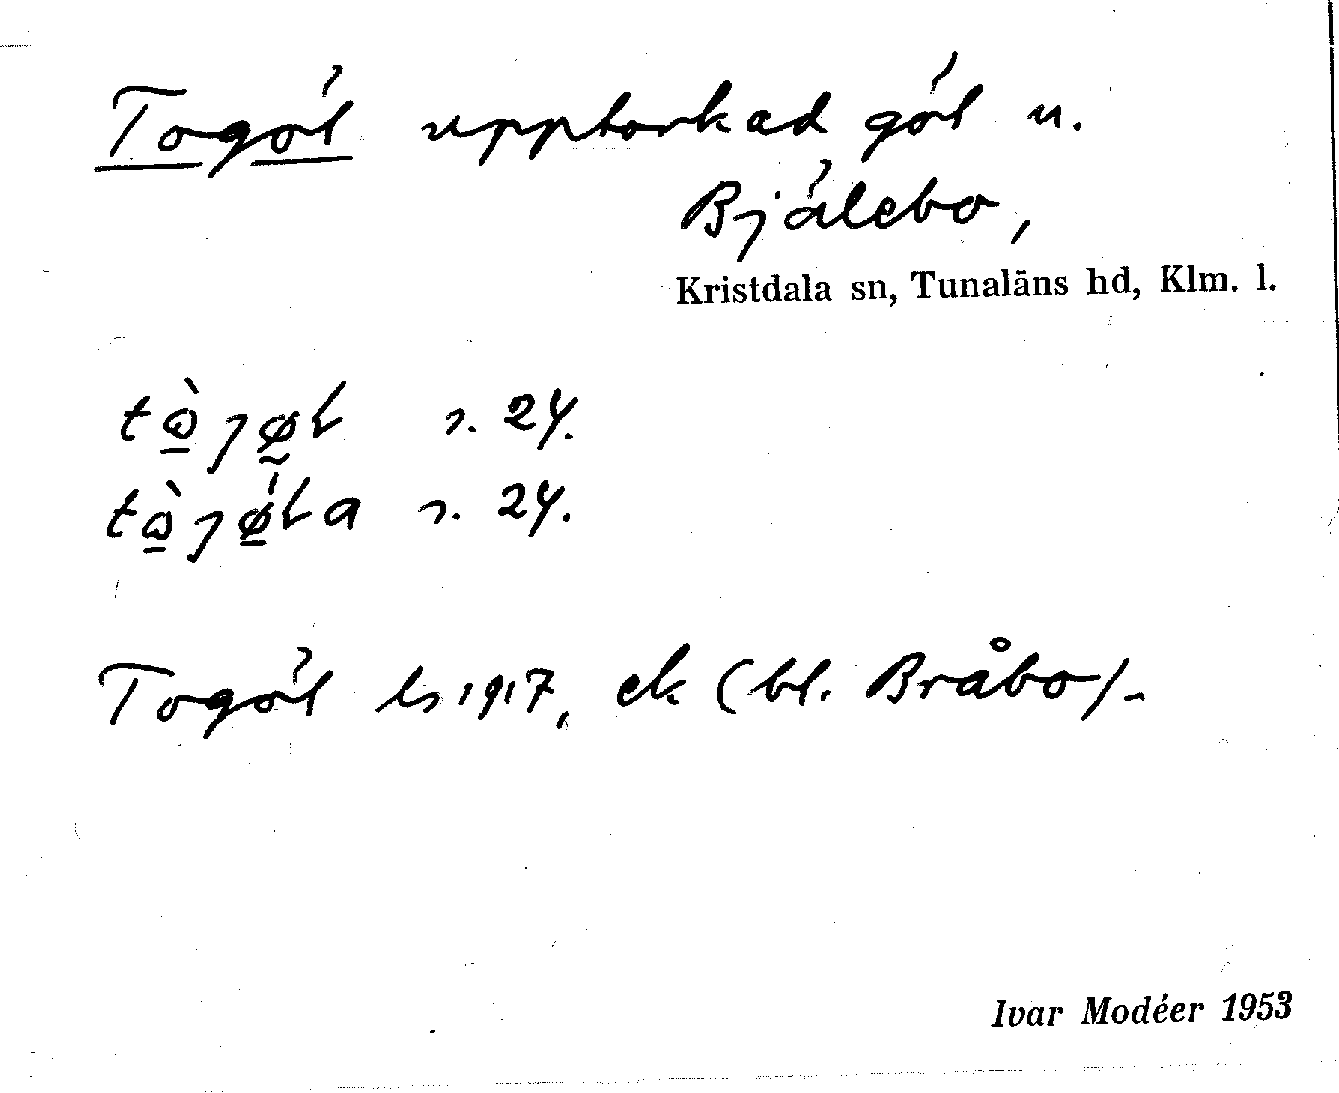 Togöl upptorkad göl u.
Bjälebo,
Kristdala sn, Tunaläns hd, Klm. l.
s. 24.
s. 24.
Togöl ls 1917, ek (bl. Bråbo).
Ivar Modéer 1953